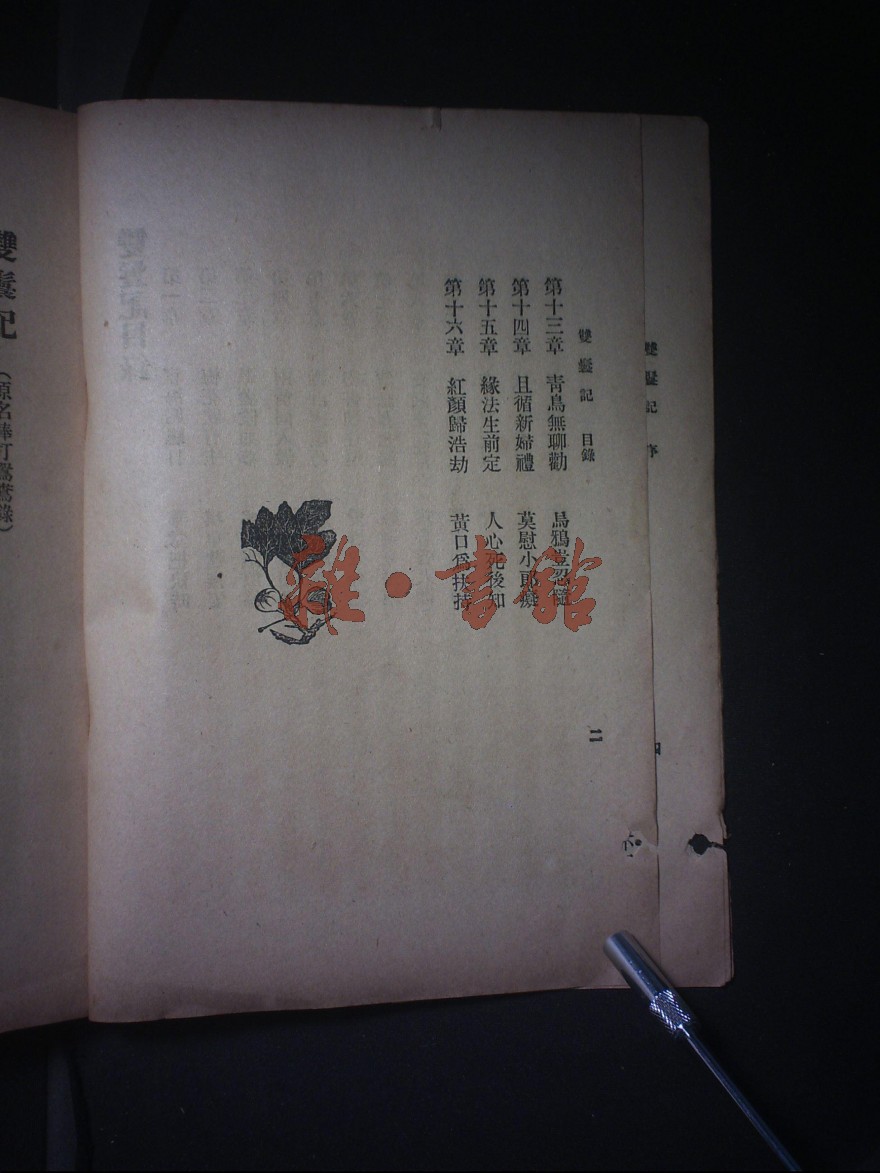 雙鬟記 序
四
雙鬟記 目錄
第十三章 青鳥無聊勸 烏鴉豈忍隨
第十四章 且循新婦禮 莫慰小郎癡
第十五章 緣法生前定 人心死後知
第十六章 紅顏歸浩劫 黃口爲扶持
二
雜·書館
雙鬟記
(原名棒打鴛鴦錄)